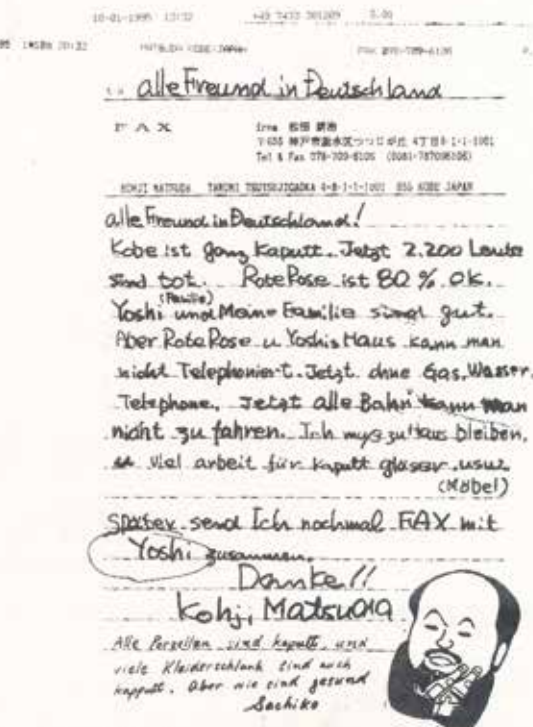 10-01-1995 13:32 +49 7433 381209 S.00
HATSUDA KOBE-JAPAN FAX 078-709-6106 P.
alle Freund in Deutschland
FAX
from 松田 耕治
神戸市垂水区つつじが丘 4丁目
Tel & Fax 078-709-6106 (0081-787096106)
KOHJI MATSUDA TARUMI TSUTSUJIGAOKA 4-8-1-1-1001 655 KOBE JAPAN
alle Freund in Deutschland!
Kobe ist ganz Kaputt. Jetzt 2.200 Leute
sind tot. Rote Rose ist 80 % ok.
(Familie)
Yoshi und Meine Familie sind gut.
Aber Rote Rose u Yoshis Haus kann man
nicht Telephoniert. Jetzt ohne Gas, Wasser,
Telephone. Jetzt alle Bahn kann man
nicht zu fahren. Ich muß zu Haus bleiben.
u viel arbeit für kaputt gläser usw.
(Möbel)
Später send Ich nochmal FAX mit
Yoshi zusammen.
Danke!!
Kohji, Matsuda
Alle Porzellan sind kaputt, und
viele Kleiderschlank sind auch
kapputt. Aber wie sind gesund
Sachiko